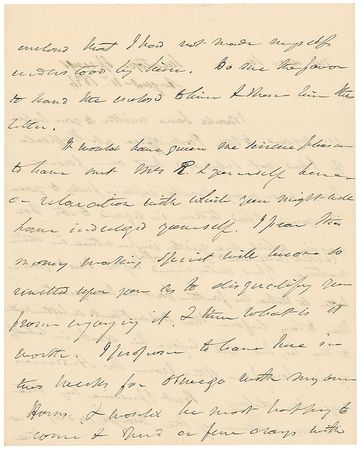 that I had not made myself
understood by him. Do me the favor
to hand the enclosed to him & show him this
letter.
It would have given me sincere pleasure
to have met Mrs R & yourself here
a relaxation with which you might well
have indulged yourself. I fear this
money making spirit will become so
upon you as to disqualify you
from enjoying it, & then what is it
worth. I propose to leave here in
two weeks for Oswego with my own
Horses, & would be most happy to
come & spend a few days with